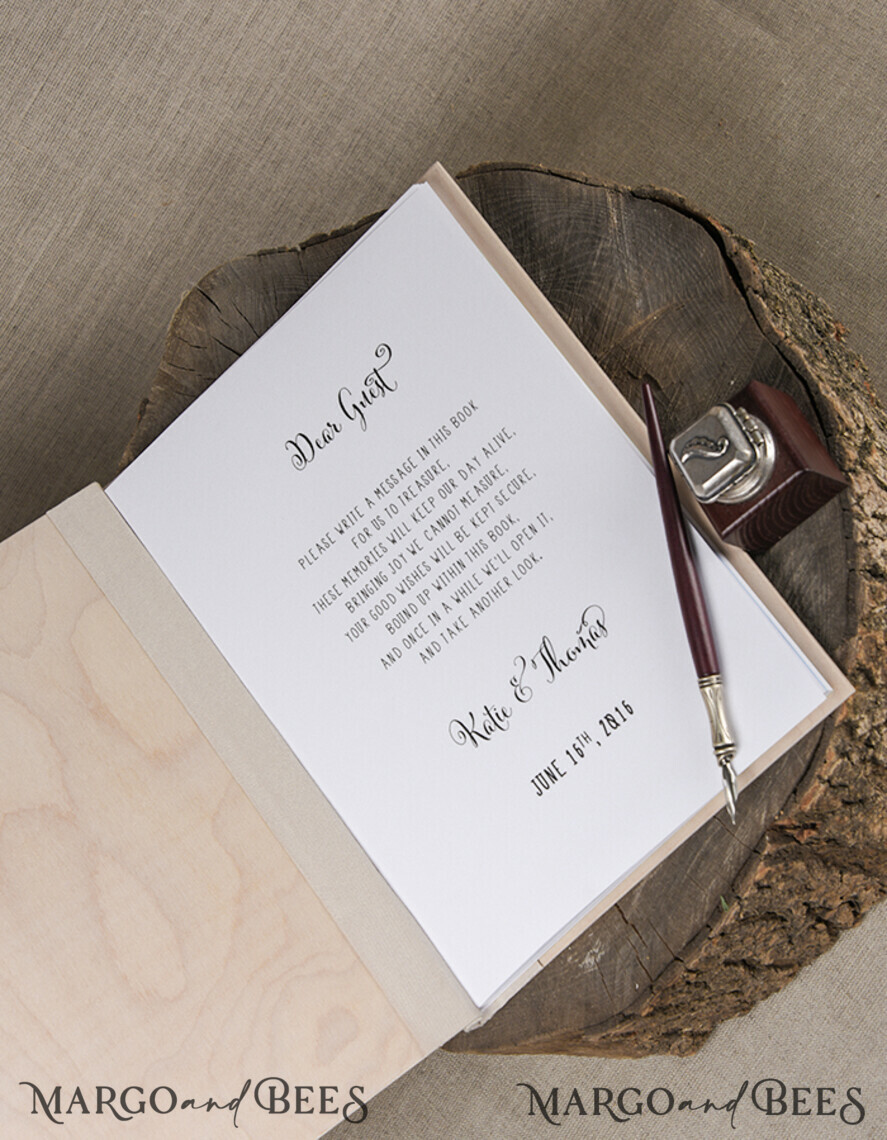 Dear Guest
PLEASE WRITE A MESSAGE IN THIS BOOK
FOR US TO TREASURE.
THESE MEMORIES WILL KEEP OUR DAY ALIVE,
BRINGING JOY WE CANNOT MEASURE.
YOUR GOOD WISHES WILL BE KEPT SECURE,
BOUND UP WITHIN THIS BOOK,
AND ONCE IN A WHILE WE'LL OPEN IT,
AND TAKE ANOTHER LOOK.
Katie & Thomas
JUNE 16TH, 2016
MARGO and BEES
MARGO and BEES